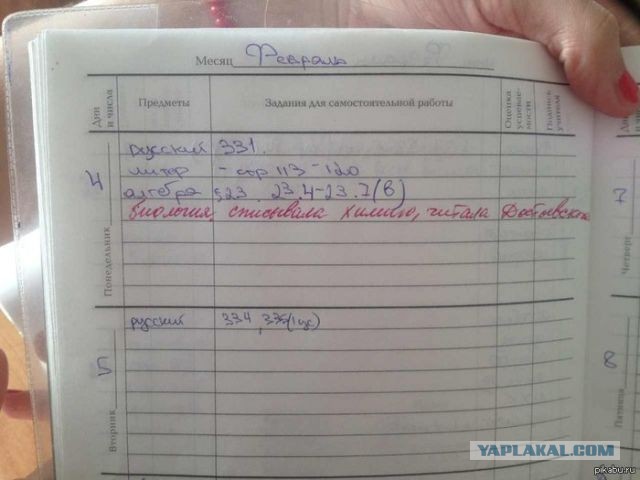 Месяц Февраль
Дни и числа Предметы Задания для самостоятельной работы Оценка успеваемости Подпись учителя
4 Понедельник
русский 331.
литер - стр 113 - 120
алгебра § 23 23.4-23.7(в)
биология, списывала химию, читала Достоевского
5 Вторник
русский 334, 335(1 ус)
7 Четверг
8 Пятница
YAPLAKAL.COM
pikabu.ru